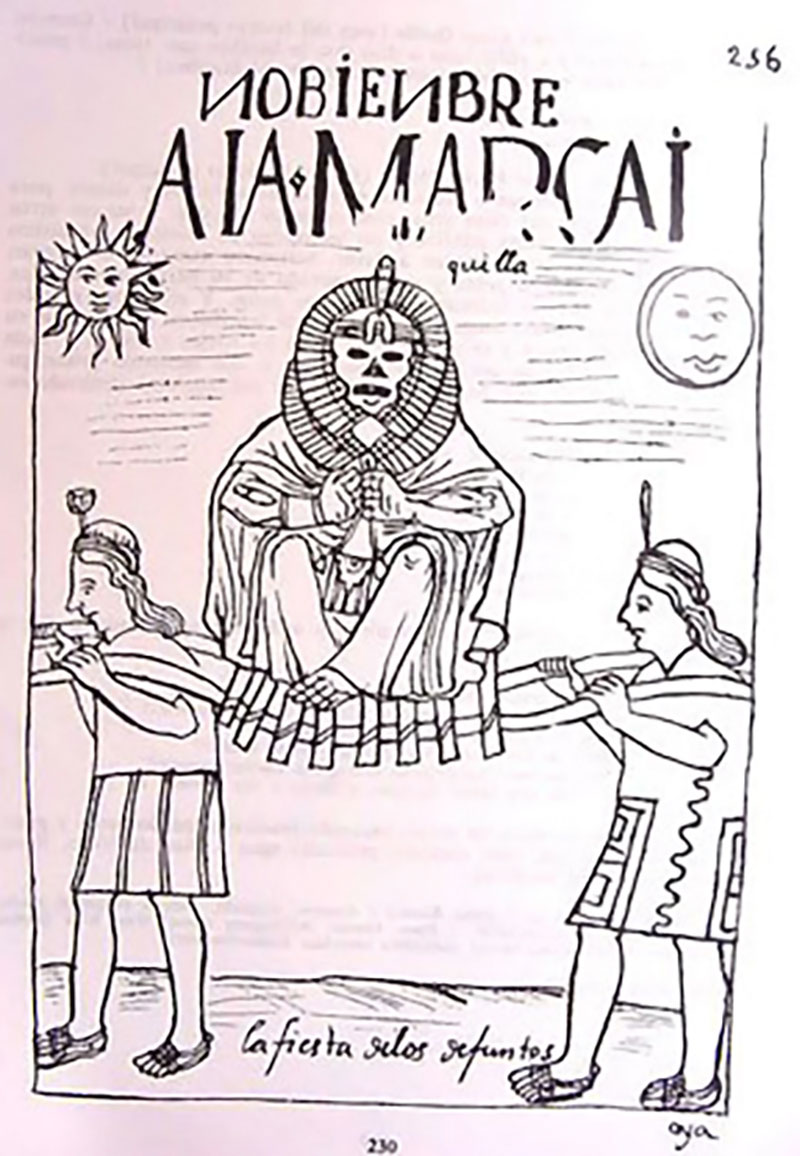 256
NOBIENBRE
AIA·MARCAI
quilla
la fiesta delos defuntos
aya
230